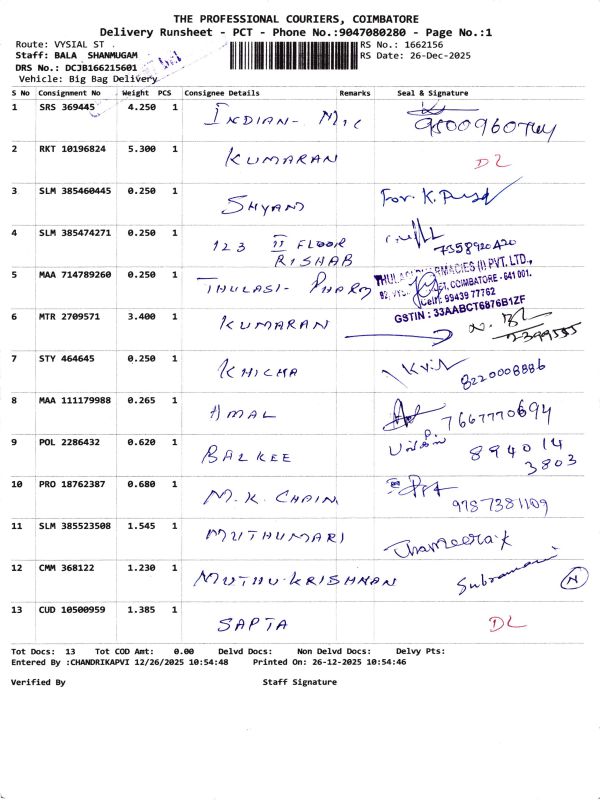 THE PROFESSIONAL COURIERS, COIMBATORE
Delivery Runsheet - PCT - Phone No.:9047080280 - Page No.:1
Route: VYSIAL ST .
Staff: BALA SHANMUGAM
DRS No.: DCJB166215601
Vehicle: Big Bag Delivery
RS No.: 1662156
RS Date: 26-Dec-2025
S No Consignment No Weight PCS Consignee Details Remarks Seal & Signature
1 SRS 369445 4.250 1 INDIAN- 
2 RKT 10196824 5.300 1 KUMARAN DL
3 SLM 385460445 0.250 1 SHYAM For. K.
4 SLM 385474271 0.250 1 123 II FLOOR
RISHAB 7358920420
5 MAA 714789260 0.250 1 THULASI- PHARM
PHARMACIES (I) PVT. LTD.,
COIMBATORE - 641 001.
Cell: 99439 77762
GSTIN : 33AABCT6876B1ZF
6 MTR 2709571 3.400 1 KUMARAN
7 STY 464645 0.250 1 KHICHA 8220008886
8 MAA 111179988 0.265 1 AMAL 7667770694
9 POL 2286432 0.620 1 BALKEE 894014
3803
10 PRO 18762387 0.680 1 M.K. CHAIN 9787381109
11 SLM 385523508 1.545 1 MUTHUMARI
12 CMM 368122 1.230 1 MUTHU KRISHNAN Subramani N
13 CUD 10500959 1.385 1 SAPTA DL
Tot Docs: 13 Tot COD Amt: 0.00 Delvd Docs: Non Delvd Docs: Delvy Pts:
Entered By :CHANDRIKAPVI 12/26/2025 10:54:48 Printed On: 26-12-2025 10:54:46
Verified By Staff Signature